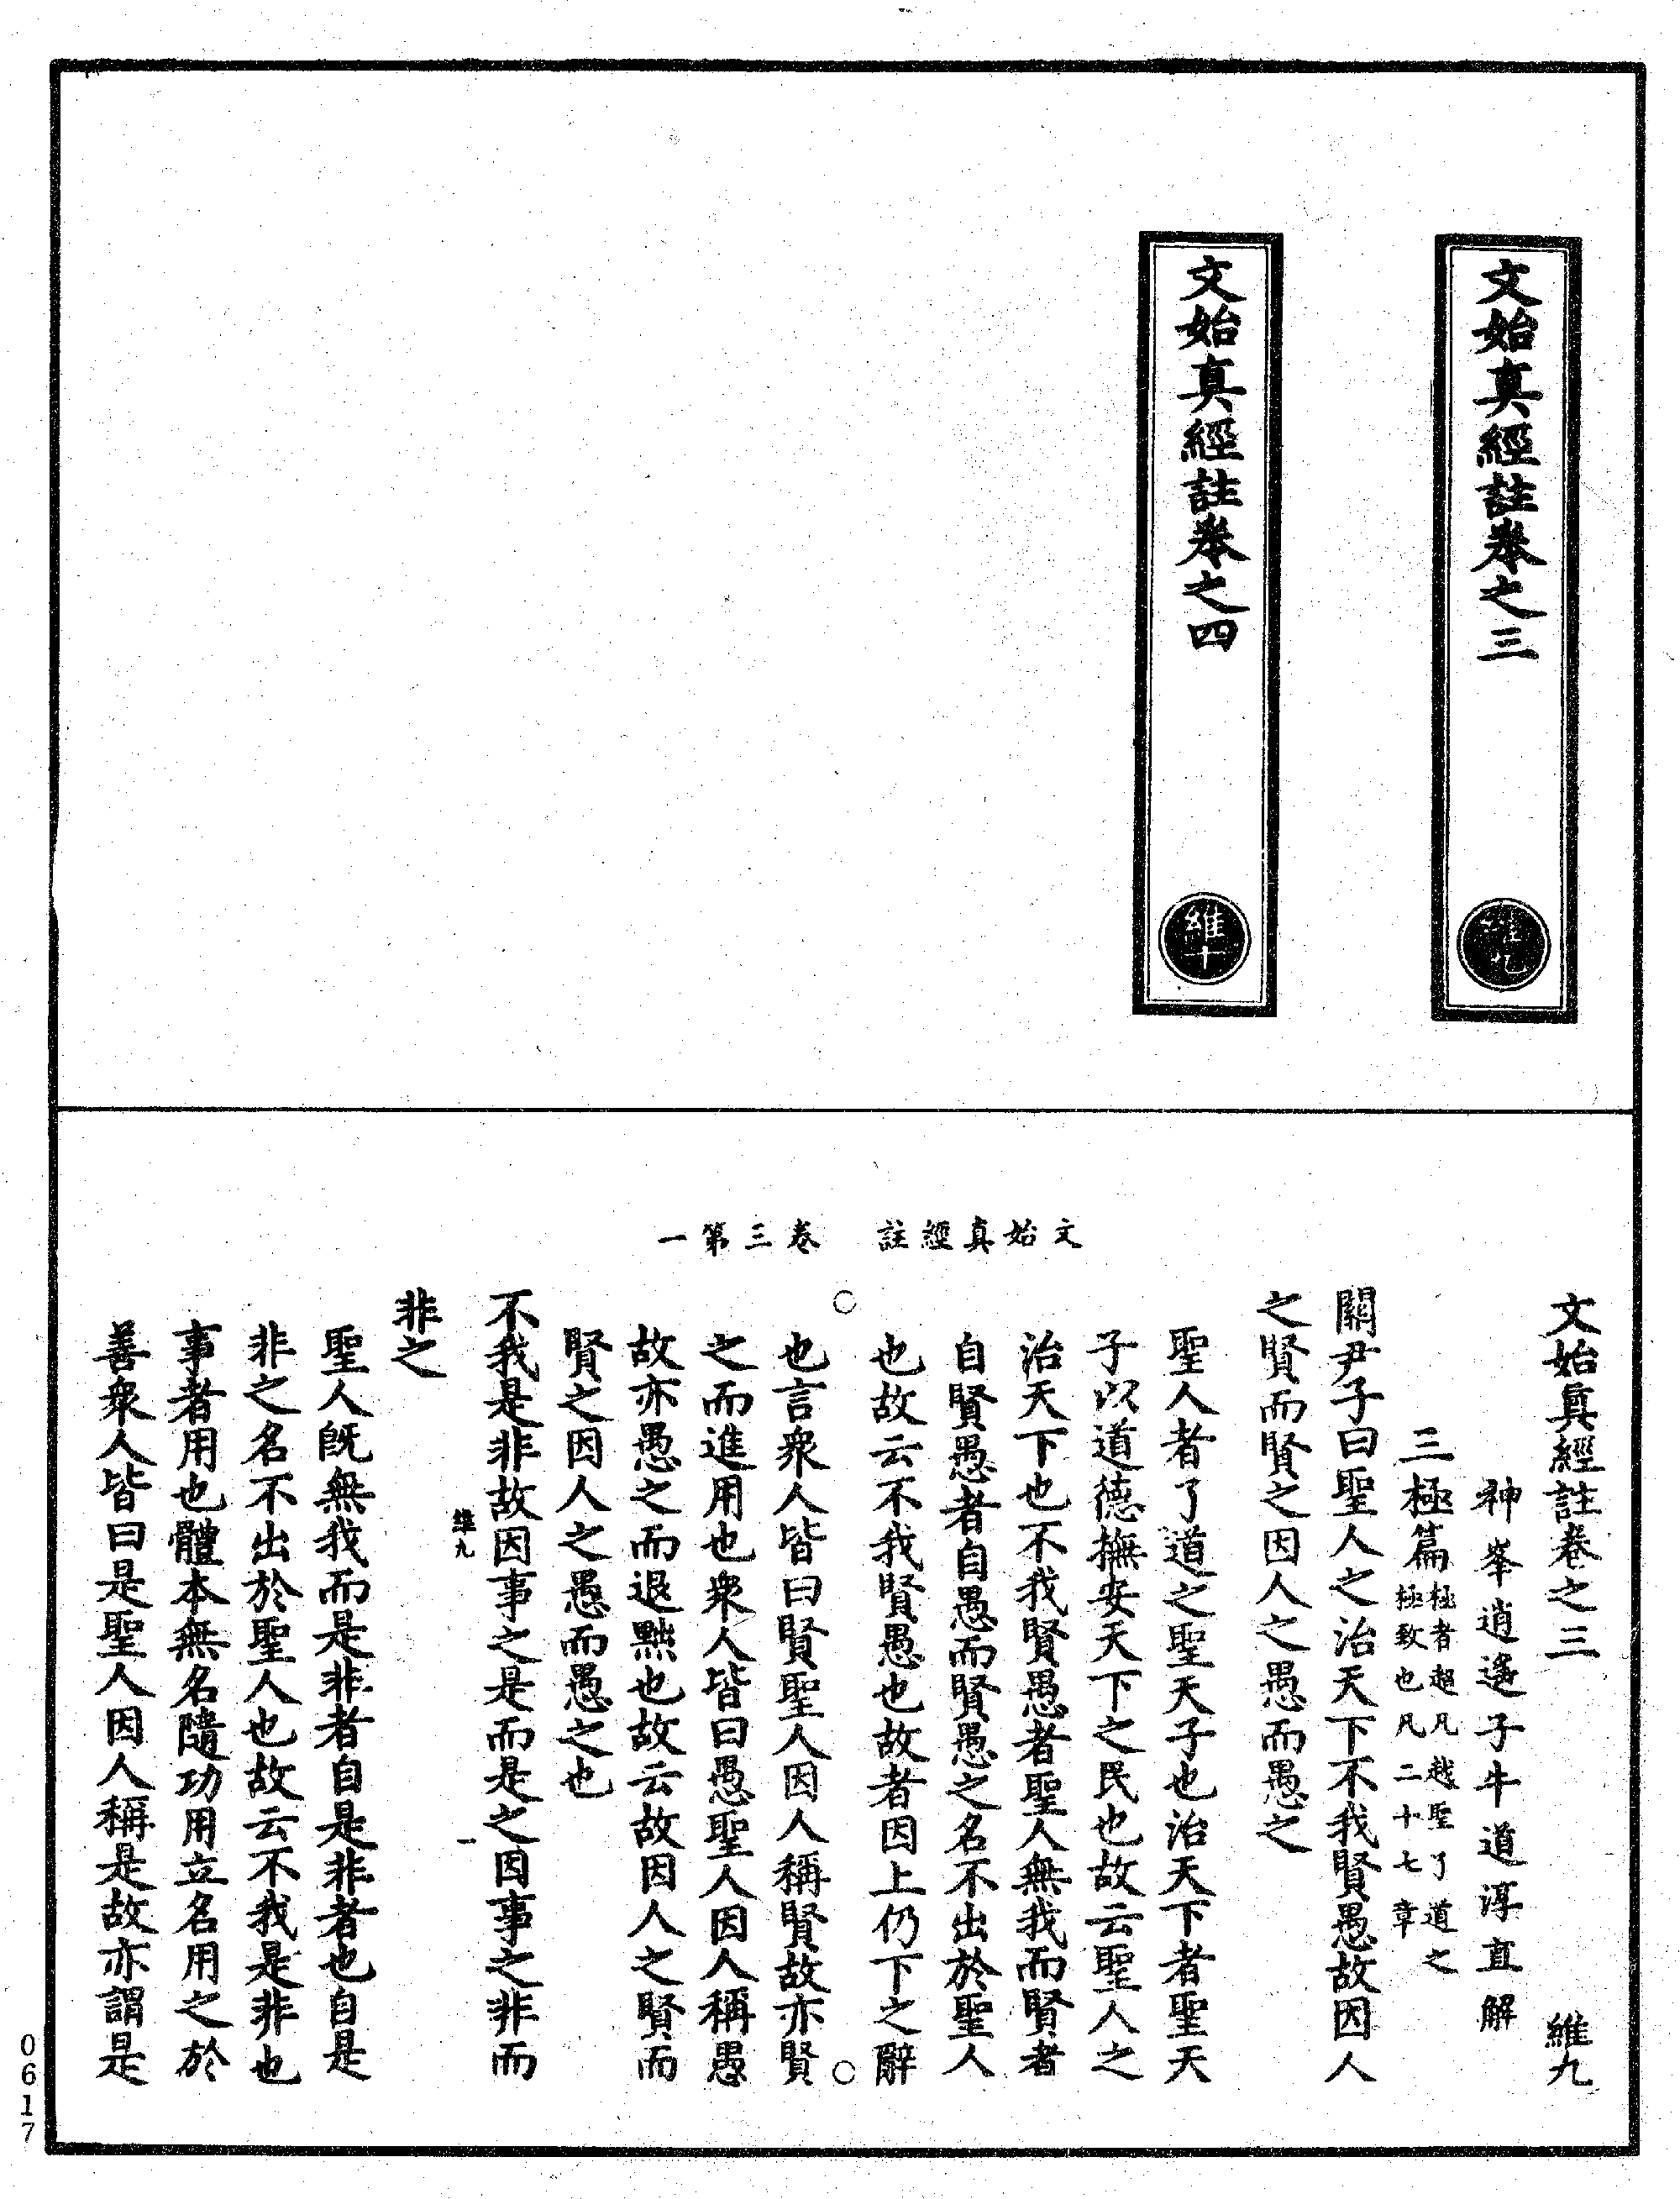 文始真經註卷之三
維九
文始真經註卷之四
維十
文始真經註　卷三第一
文始真經註卷之三　維九
神峯逍遙子牛道淳直解
三極篇極者超凡越聖了道之極致也凡二十七章
關尹子曰聖人之治天下不我賢愚故因人
之賢而賢之因人之愚而愚之
聖人者了道之聖天子也治天下者聖天
子以道德撫安天下之民也故云聖人之
治天下也不我賢愚者聖人無我而賢者
自賢愚者自愚而賢愚之名不出於聖人
也故云不我賢愚也故者因上仍下之辭
也言衆人皆曰賢聖人因人稱賢故亦賢
之而進用也衆人皆曰愚聖人因人稱愚
故亦愚之而退黜也故云故因人之賢而
賢之因人之愚而愚之也
不我是非故因事之是而是之因事之非而
維九　一
非之
聖人旣無我而是非者自是非者也自是
非之名不出於聖人也故云不我是非也
事者用也體本無名隨功用立名用之於
善衆人皆曰是聖人因人稱是故亦謂是
0617